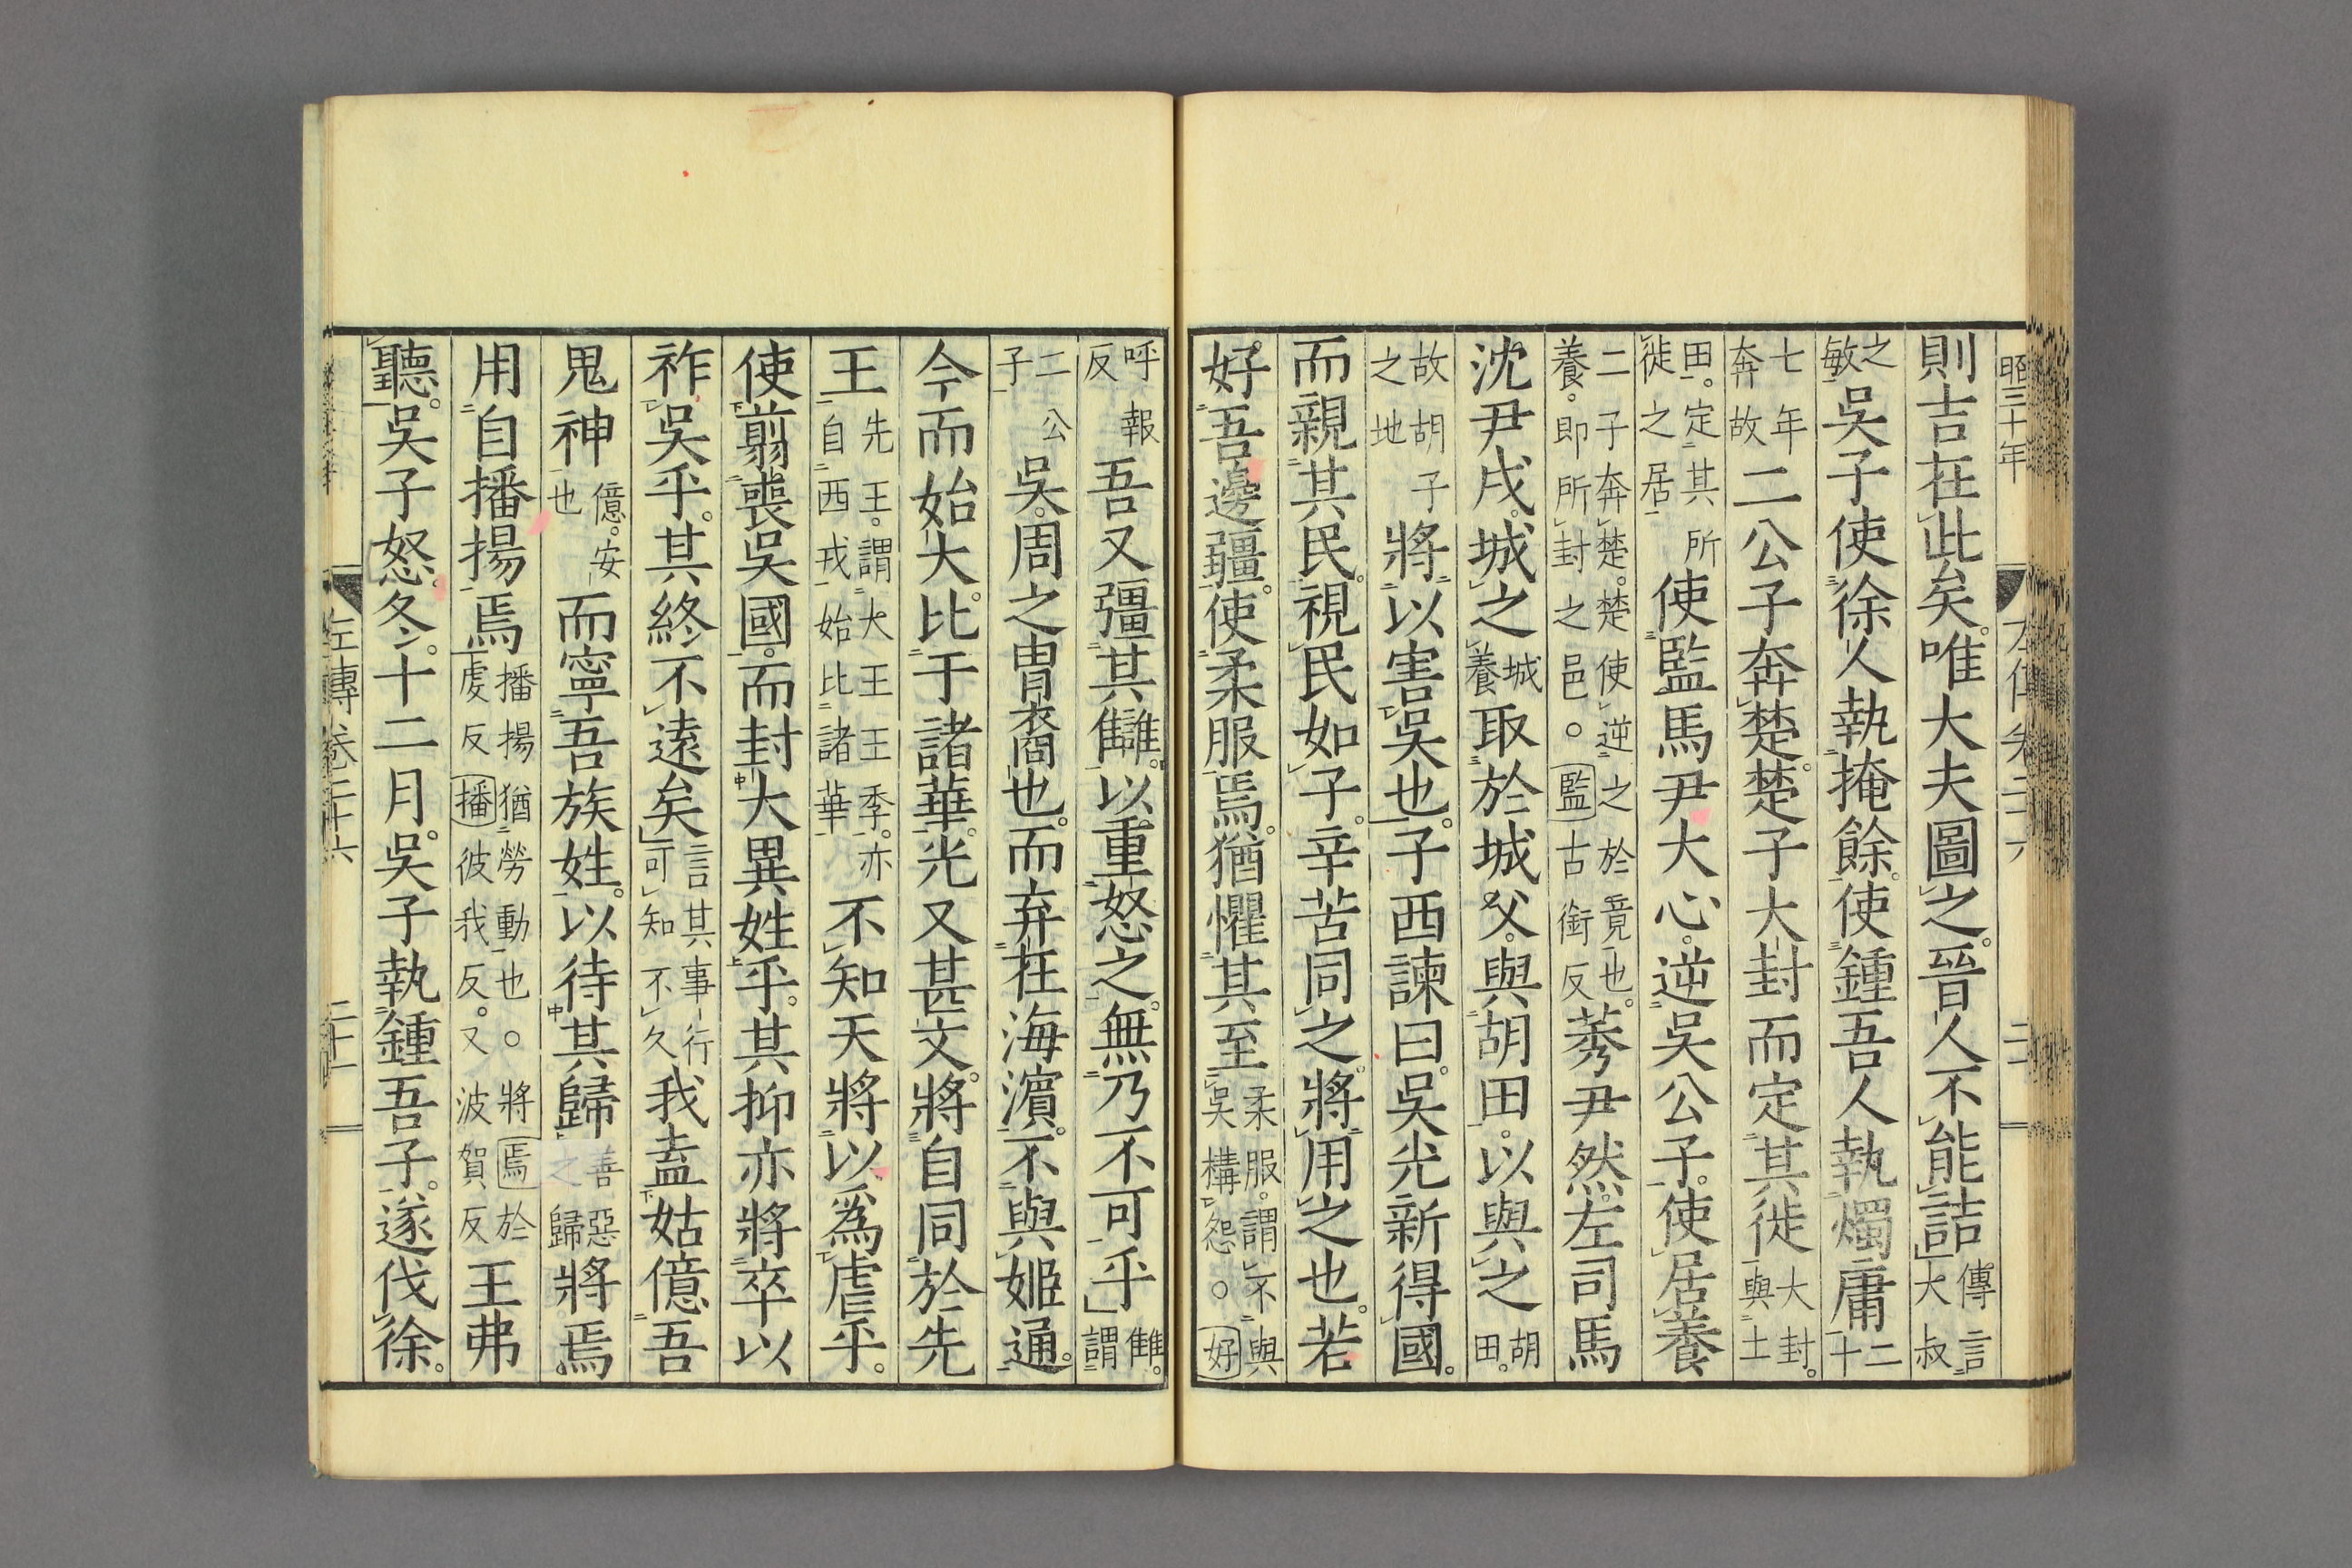 昭三十年
二十一
則吉在此矣。唯大夫圖之。晉人不能詰傳言大叔
之敏吳子使徐人執掩餘。使鍾吾人執燭庸二十
七年奔故二公子奔楚。楚子大封而定其徙大封。與土
田。定其所徙之居使監馬尹大心。逆吳公子。使居養
二子奔楚。楚使逆之於竟也。養。即所封之邑。○監古銜反莠尹然。左司馬
沈尹戌。城之城養取於城父。與胡田。以與之胡田。
故胡子之地將以害吳也。子西諫曰。吳光新得國。
而親其民。視民如子。辛苦同之。將用之也。若
好。吾邊疆。使柔服焉。猶懼其至柔服。謂不與吳構怨。○好
呼報反吾又彊其讎。以重怒之。無乃不可乎讎。謂
二公子吳。周之冑裔也。而弃在海濱。不與姬通。
今而始大。比于諸華。光又甚文。將自同於先
王先王。謂大王王季。亦自西戎始比諸華不知天將以爲虐乎。
使翦喪吳國。而封大異姓乎。其抑亦將卒以
祚吳乎。其終不遠矣言其事行可知不久我盍姑億吾
鬼神億。安也而寧吾族姓。以待其歸善惡之歸將焉
用自播揚焉播揚猶勞動也。○將焉於虔反播彼我反。又波賀反王弗
聽。吳子怒。冬。十二月。吳子執鍾吾子。遂伐徐。
左傳卷二十六
二十一